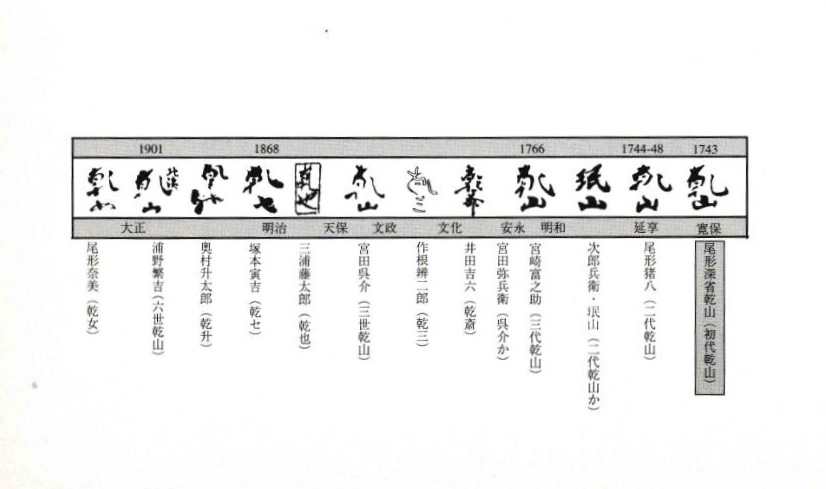 1901 1868 1766 1744-48 1743
乾山 乾山 珉山 乾山 乾斎 乾三 乾山 乾也 乾七 乾升 乾山 乾女
寛保 延享 明和 安永 文化 文政 天保 明治 大正
尾形深省乾山（初代乾山）
尾形猪八（二代乾山）
次郎兵衛・珉山（二代乾山か）
宮崎富之助（三代乾山）
宮田弥兵衛（呉介か）
井田吉六（乾斎）
作根辨二郎（乾三）
宮田呉介（三世乾山）
三浦藤太郎（乾也）
塚本寅吉（乾七）
奥村升太郎（乾升）
浦野繁吉（六世乾山）
尾形奈美（乾女）